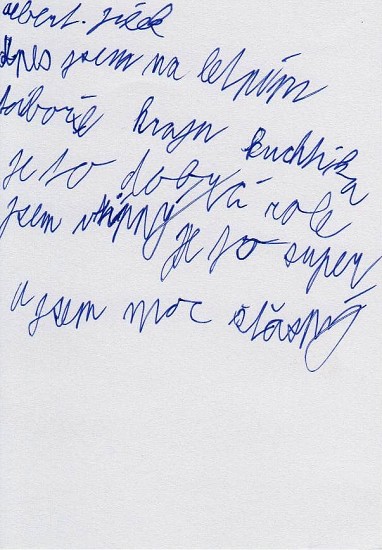 albert. jizek
dnes jsem na letním
táboře hraju kuchtíka
je to dobrá role
jsem vtipný je to super
a jsem moc štasný